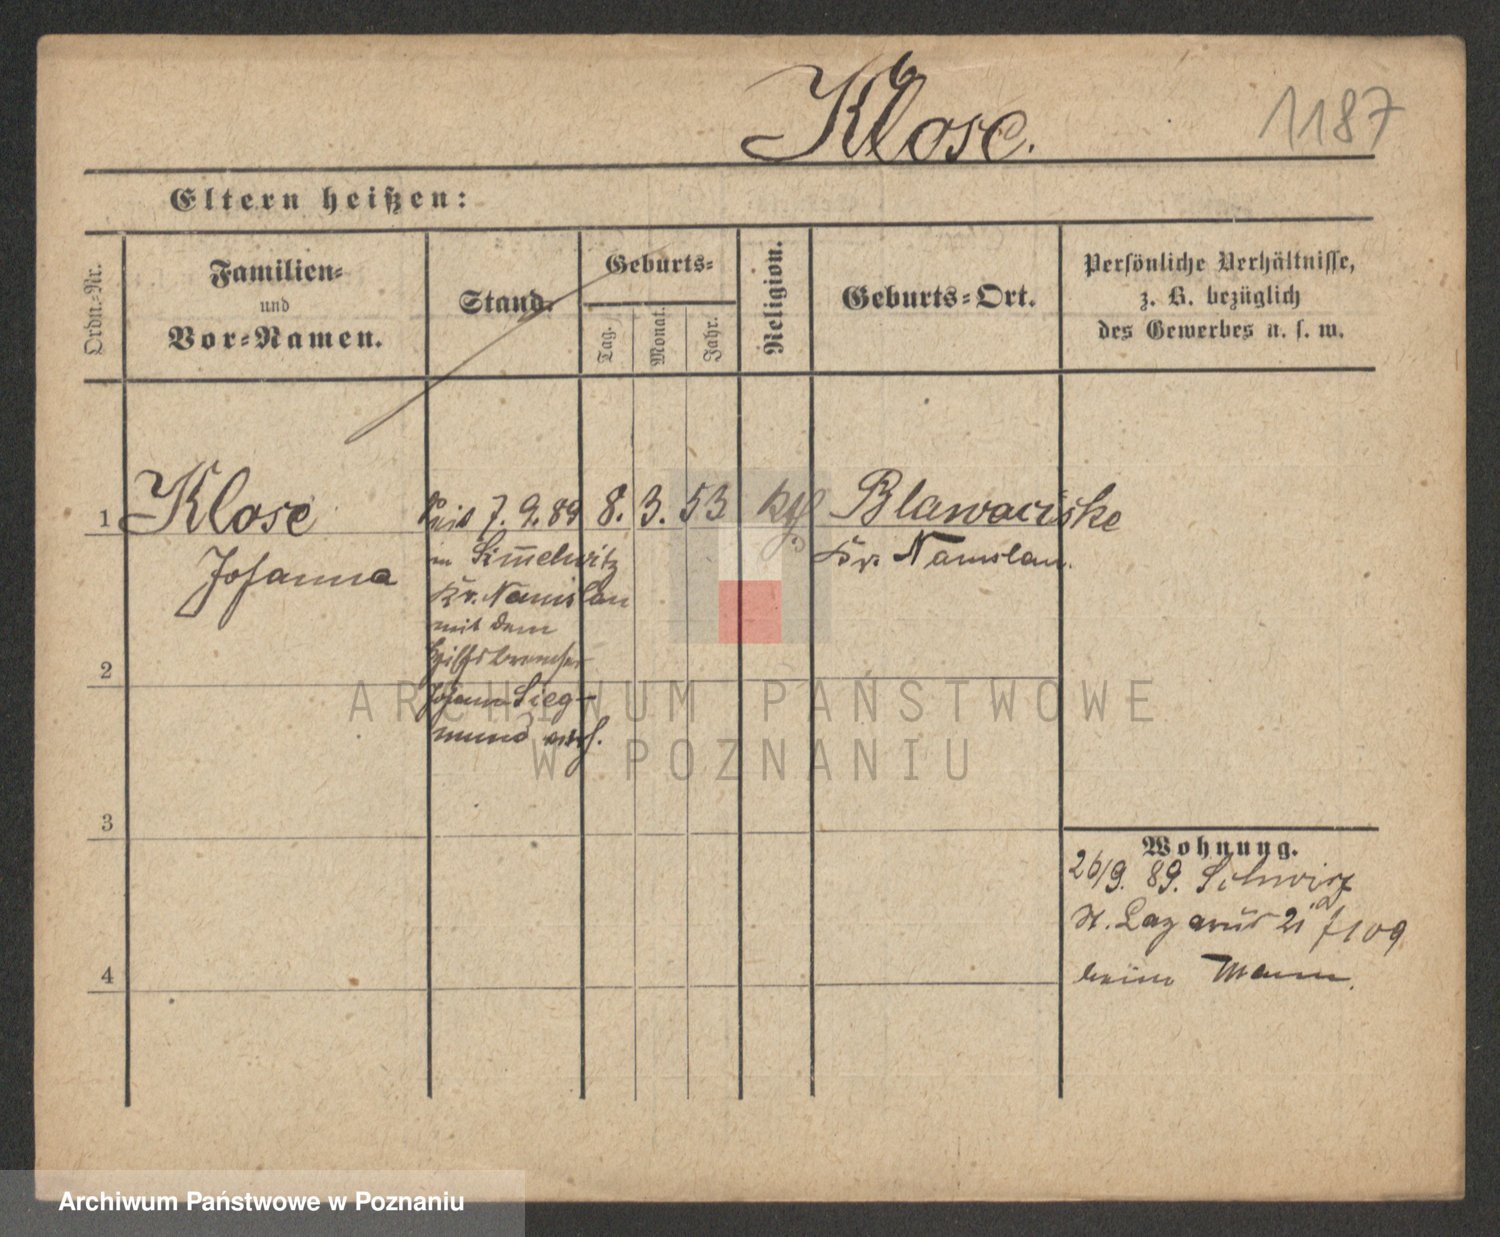 Klose.
1187
Eltern heißen:
Ordn.=Nr.
Familien=
und
Vor=Namen.
Stand.
Geburts=
Tag.
Monat.
Jahr.
Religion.
Geburts=Ort.
Persönliche Verhältnisse,
z. B. bezüglich
des Gewerbes u. s. w.
1
Klose
Johanna
seit 7. 9. 89
in Sim̅elwitz
Kr. Namslau
mit dem
Hilfsbremser
Johann Sieg-
mund verh.
8. 3. 53
kath
Blawaciske
Kr. Namslau.
2
3
4
Wohnung.
26/9. 89.
St. Lazarus 21 f 109
beim Mann.
ARCHIWUM PAŃSTWOWE
W POZNANIU
Archiwum Państwowe w Poznaniu